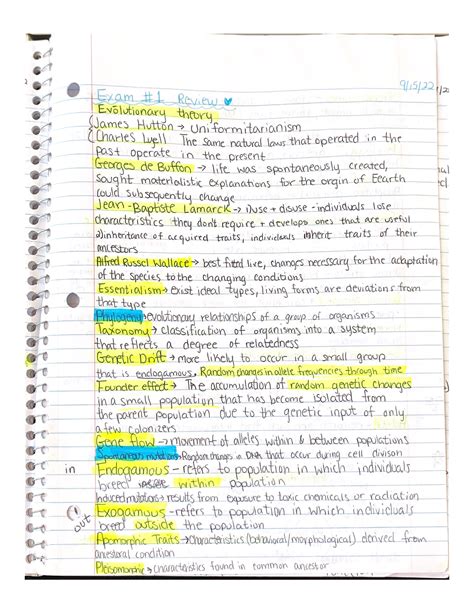 Exam #1 Review
9/15/22
Evolutionary theory
James Hutton → Uniformitarianism
Charles Lyell The same natural laws that operated in the
past operate in the present
Georges de Buffon → life was spontaneously created,
sought materialistic explanations for the origin of Eearth
could subsequently change
Jean-Baptiste Lamarck → 1) use + disuse - individuals lose
characteristics they don't require + develops ones that are useful
2) inheritance of acquired traits, individuals inherit traits of their
ancestors
Alfred Russel Wallace → best fitted live, changes necessary for the adaptation
of the species to the changing conditions
Essentialism → exist ideal types, living forms are deviations from
that type
Phylogeny → evolutionary relationships of a group of organisms
Taxonomy → classification of organisms into a system
that reflects a degree of relatedness
Genetic Drift → more likely to occur in a small group
that is endogamous, Random changes in allele frequencies through time
Founder effect → The accumulation of random genetic changes
in a small population that has become isolated from
the parent population due to the genetic input of only
a few colonizers
Gene flow → movement of alleles within & between populations
Spontaneous mutations → Random changes in DNA that occur during cell divison
in Endogamous - refers to population in which individuals
breed within population
Induced mutations → results from exposure to toxic chemicals or radiation
out Exogamous - refers to population in which individuals
breed outside the population
Apomorphic Traits → characteristics (behavioral/morphological) derived from
ancestral condition
Plesiomorphic → characteristics found in common ancestor